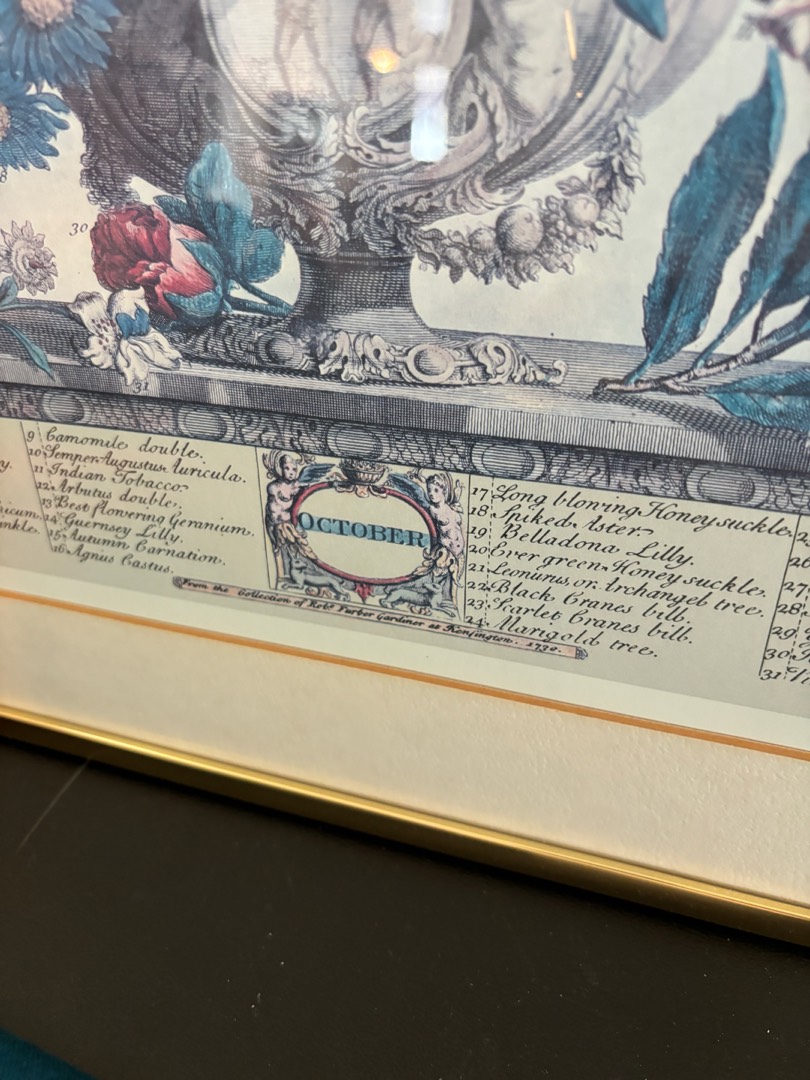 30
31
9 Camomile double.
10 Semper Augustus Auricula.
11 Indian Tobacco.
12 Arbutus double.
13 Best flowering Geranium.
14 Guernsey Lilly.
15 Autumn Carnation.
16 Agnus Castus.
OCTOBER
From the Collection of Robt. Furber Gardiner at Kensington. 1730.
17 Long blowing Honeysuckle.
18 Spiked Aster.
19 Belladona Lilly.
20 Ever green Honey suckle.
21 Leonurus, or Archangel tree.
22 Black Cranes bill.
23 Scarlet Cranes bill.
24 Marigold tree.
26
27
28
29
30
31